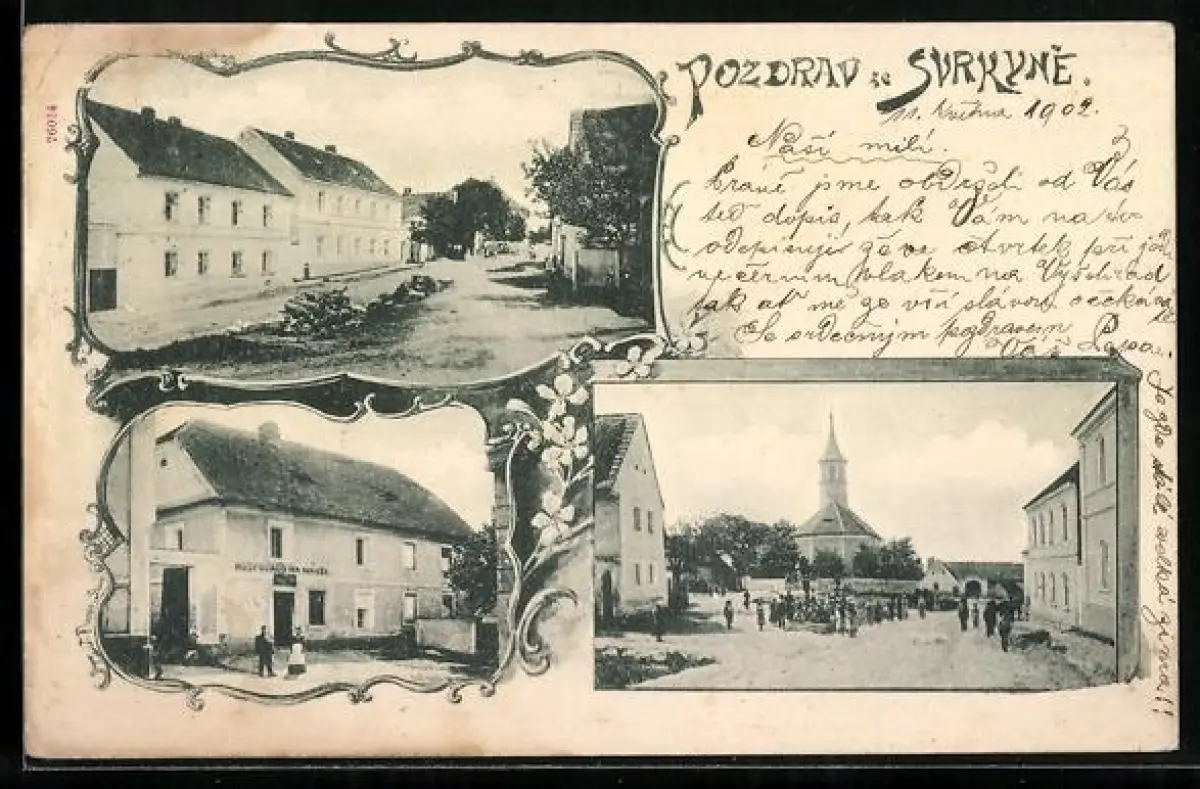 76014
POZDRAV ze SVRKYNĚ.
11. května 1902.
Naší milí.
Právě jsme obdrželi od Vás
teď dopis, tak Vám na
odepisuji že ve čtvrtek při
večerním vlakem na Vyšehrad
tak ať mě ze vší slávou očekáv
Se srdečným pozdravem
Váš
Je zde stále velká zima!!
HOSTINEC